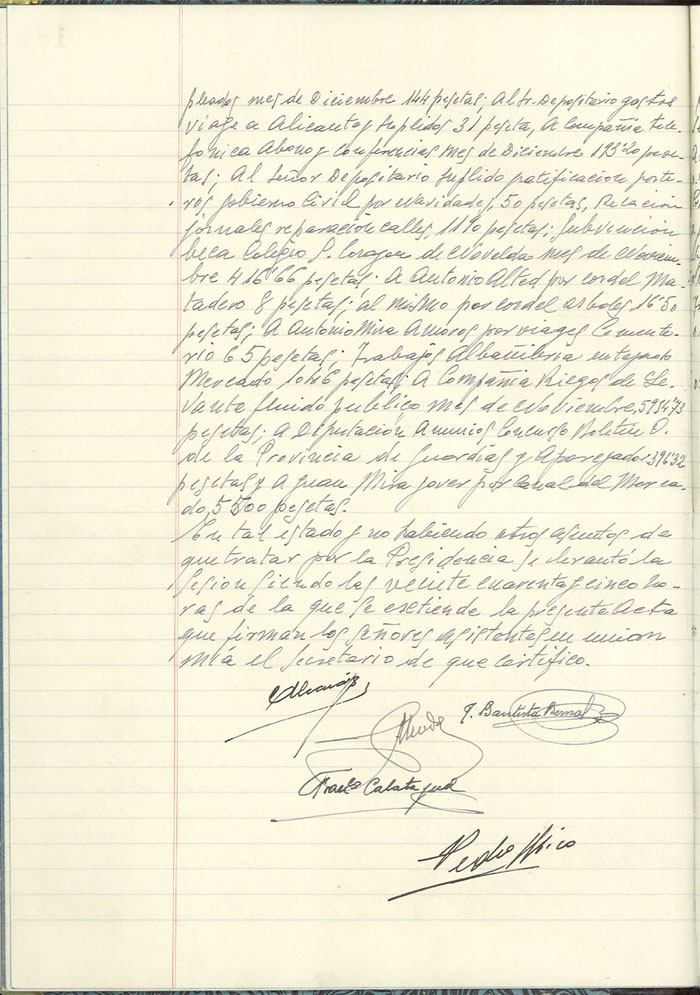 pleados mes de Diciembre 144 pesetas; Al Sr. Depositario gastos
viaje a Alicante y suplidos 31 peseta, A Compañia tele-
fonica Abono y Conferencias mes de Diciembre 193'20 pese-
tas; Al Señor Depositario suplido gratificacion porte-
ros gobierno Civil por Navidades, 50 pesetas, Relacion
jornales reparación calles, 1190 pesetas; Subvencion
beca Colegio S. Corazon de Novelda mes de Noviem-
bre 416'66 pesetas; A Antonio Alted por cordel Ma-
tadero 8 pesetas; al mismo por cordel arboles 16'50
pesetas; A Antonio Mira Amoros por viages Cemente-
rio 65 pesetas; Trabajos Albañileria en tejado
Mercado pesetas; A Compañia Riegos de Le-
vante fluido publico mes de Noviembre, 5934'73
pesetas; a Diputación Anuncios Concurso Boletin O.
de la Provincia de Guardias y Aparejador 396'32
pesetas y a Juan Mira Jover por canal del Merca-
do, 5500 pesetas.
En tal estado y no habiendo otros asuntos de
que tratar por la Presidencia se levantó la
sesion siendo las veinte cuarenta y cinco ho-
ras de la que se extiende la presente Acta
que firman los señores asistentes en union
mía el Secretario de que certifico.
J. Bautista Bernal
Franco Calatayud
Pedro Mico